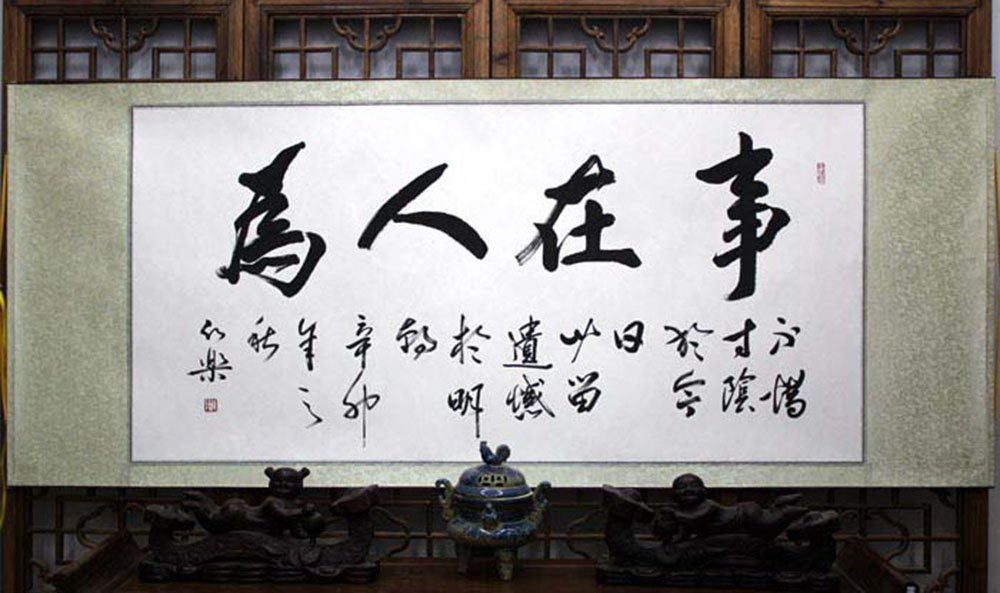 事在人為
不惜
寸陰
於今
日
必留
遺憾
於明
朝
辛卯
年之
秋
樂